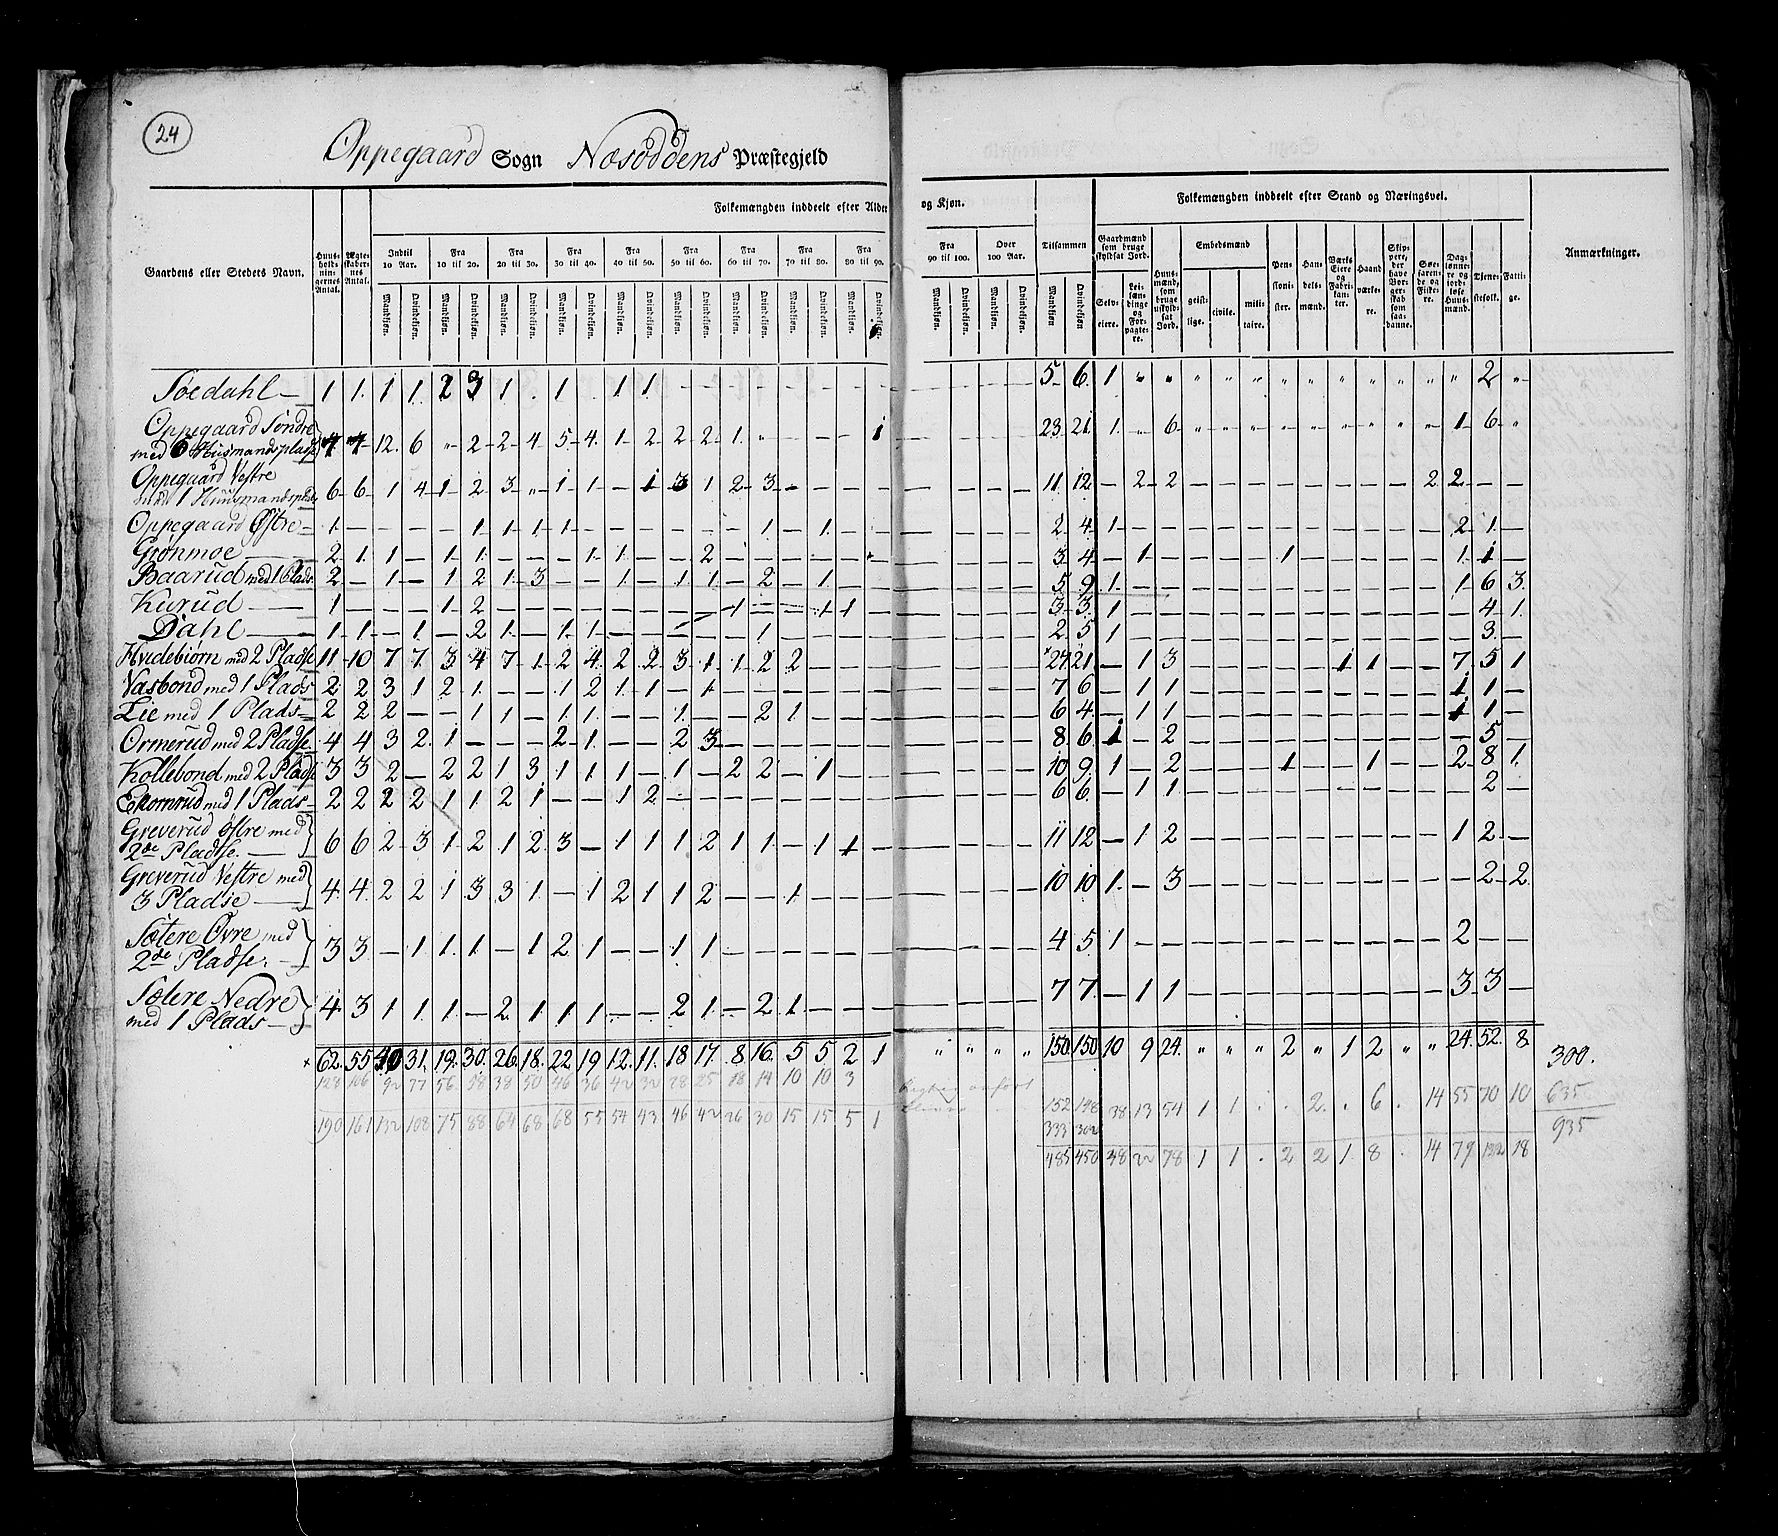 24
Oppegaard Sogn Næsoddens Præstegjeld
Folkemængden inddeelt efter Alder og Kjøn.
Folkemængden inddeelt efter Stand og Næringsvei.
Gaardens eller Stedets Navn.
Huus-holdningernes Antal.
Ægteskabernes Antal.
Indtil 10 Aar.
Fra 10 til 20.
Fra 20 til 30.
Fra 30 til 40.
Fra 40 til 50.
Fra 50 til 60.
Fra 60 til 70.
Fra 70 til 80.
Fra 80 til 90.
Fra 90 til 100.
Over 100 Aar.
Tilsammen
Mandkjøn. Qvindekjøn.
Gaardmænd som bruge skyldsat Jord.
Selveiere.
Leilændinge og Forpagtere.
Huusmænd, som bruge uskyldsat Jord.
Embedsmænd
geistlige. civile. militaire.
Pensionister.
Handelsmænd.
Værks Eiere og Fabrikanter.
Haandværkere.
Skippere, der have Borgerskab som saadanne.
Søefarende og Fiskere.
Daglønnere og jordløse Huusmænd.
Tjenestefolk.
Fattige.
Anmærkninger.
Søedahl 1 1 1 1 2 3 1 . 1 . 1 1 — — — — — — 5 6 1 " " " " " " " " " " " " 2 "
Oppegaard Søndre
med 6 Huusmandspladse 7 7 12 6 " 2 2 4 5 4 1 2 2 2 1 " — — — 1 23 21 1 " 6 " " " " " " " " " 1 6 "
Oppegaard Vestre
med 1 Huusmandsplads 6 6 1 4 1 2 3 " 1 1 — 1 3 1 2 3 — — — — 11 12 — 2 2 — — — — — — — — 2 2 — —
Oppegaard Østre 1 — — — — 1 1 1 1 — — — — — — 1 — 1 — — 2 4 1 — — — — — — — — — — — 2 1 —
Grønmoe 2 1 1 — 1 1 — — — 1 1 — — 2 3 4 — 1 — — — — 1 — — — — — 1 1 —
Baarud med 1 Plads 2 — 1 — 1 2 1 3 — — 1 — 1 1 — 2 — 1 — — 5 9 1 — — — — — — — — — — — 1 6 3
Kurud 1 — — — 1 2 — — — — — — — — 1 — — 1 1 — 3 3 1 — — — — — — — — — — — — 4 1
Dahl 1 1 — 1 — 2 1 — 1 1 — — — — — 1 — — — — 2 5 1 — — — — — — — — — — — — 3 —
Hvidebiørn med 2 Pladse 11 10 7 7 3 4 7 1 2 4 2 2 3 1 1 2 2 — — — 27 21 — 1 3 — — — — — 1 1 — — 7 5 1
Vasbond med 1 Plads 2 2 3 1 2 1 — — 1 2 1 1 — 1 — — — — — — 7 6 — 1 1 — — — — — — — — — 1 1 —
Lie med 1 Plads 2 2 2 — — 1 1 — 1 1 — — 1 — — 2 1 — — — 6 4 — 1 1 — — — — — — — — — 1 1 —
Ormerud med 2 Pladse 4 4 3 2 1 — — — 2 1 — — 2 3 — — — — — — 8 6 1 — 2 — — — — — — — — — — 5 —
Kollebond med 2 Pladse 3 3 2 — 2 2 1 3 1 1 1 — 1 — 2 2 — 1 — — 10 9 1 — 2 — — — 1 — — 1 — — 2 8 1
Ekornrud med 1 Plads 2 2 2 2 1 1 2 1 — — 1 2 — — — — — — — — 6 6 — 1 1 — — — — — — — — — — 2 —
Greverud Østre med
2de Pladse. 6 6 2 3 1 2 1 2 3 — 1 1 1 2 1 1 — 1 1 — 11 12 — 1 2 — — — — — — — — — 1 2 —
Greverud Vestre med
3 Pladse 4 4 2 2 1 3 3 1 — 1 2 1 1 2 — — 1 — — — 10 10 1 — 3 — — — — — — — — — — 2 2
Sætere Øvre med
2de Pladse. 3 3 — 1 1 1 — 1 2 1 — — 1 1 — — — — — — 4 5 1 — — — — — — — — — — — 2 — —
Sætere Nedre
med 1 Plads 4 3 1 1 1 — 2 1 1 1 — — 2 1 — 2 1 — — — 7 7 — 1 1 — — — — — — — — — 3 3 —
62 55 40 31 19 30 26 18 22 19 12 11 18 17 8 16 5 5 2 1 " " " " 150 150 10 9 24 " " " 2 " 1 2 " " 24 52 8 300.
128 106 92 77 56 58 38 50 46 36 42 32 28 25 18 14 10 10 3 152 148 38 13 54 1 1 . . 2 . 6 . 14 55 70 10 635
190 161 132 108 75 88 64 68 68 55 54 43 46 42 26 30 15 15 5 1 333 302 935
485 450 48 22 78 1 1 . 2 2 1 8 . 14 79 18